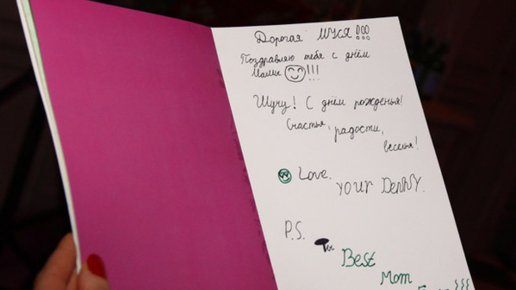 Дорогая Муся!!!
Поздравляю тебя с днём
Мамы !!!
Шучу! С днём рожденья!
Счастья, радости,
веселья!
Love,
your Denny.
P.S.
Best
Mom